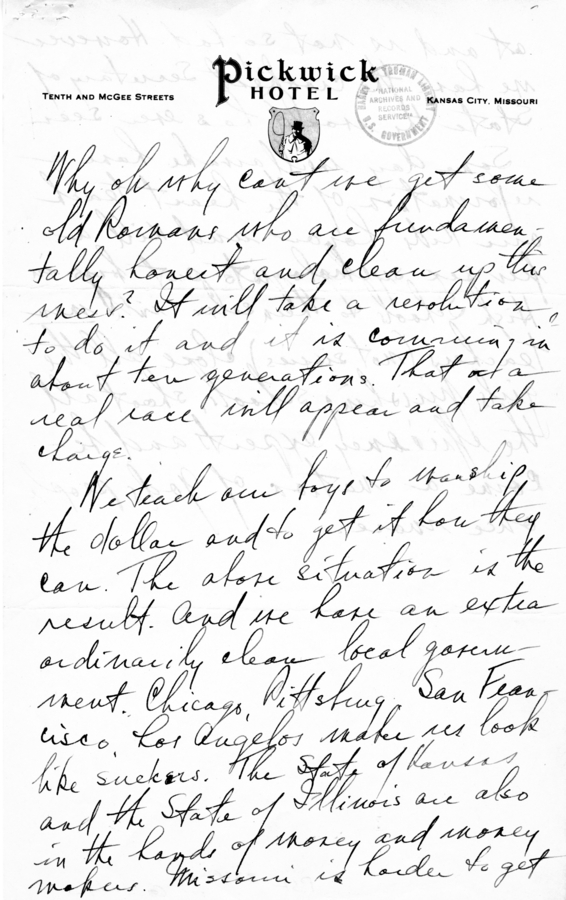 Pickwick
HOTEL
TENTH AND MCGEE STREETS
KANSAS CITY, MISSOURI
HARRY S. TRUMAN LIBRARY
NATIONAL
ARCHIVES AND
RECORDS
SERVICE
U.S. GOVERNMENT
Why oh why can't we get some
old Romans who are fundamen-
tally honest and clean up this
mess? It will take a revolution
to do it and it is comming in
about ten generations. That is a
real race will appear and take
charge.
We teach our boys to worship
the dollar and to get it how they
can. The above situation is the
result. And we have an extra
ordinarily clean local govern-
ment. Chicago, Pittsburg, San Fran-
cisco, Los Angelos make us look
like suckers. The State of Kansas
and the State of Illinois are also
in the hands of money and money
makers. Missouri is harder to get